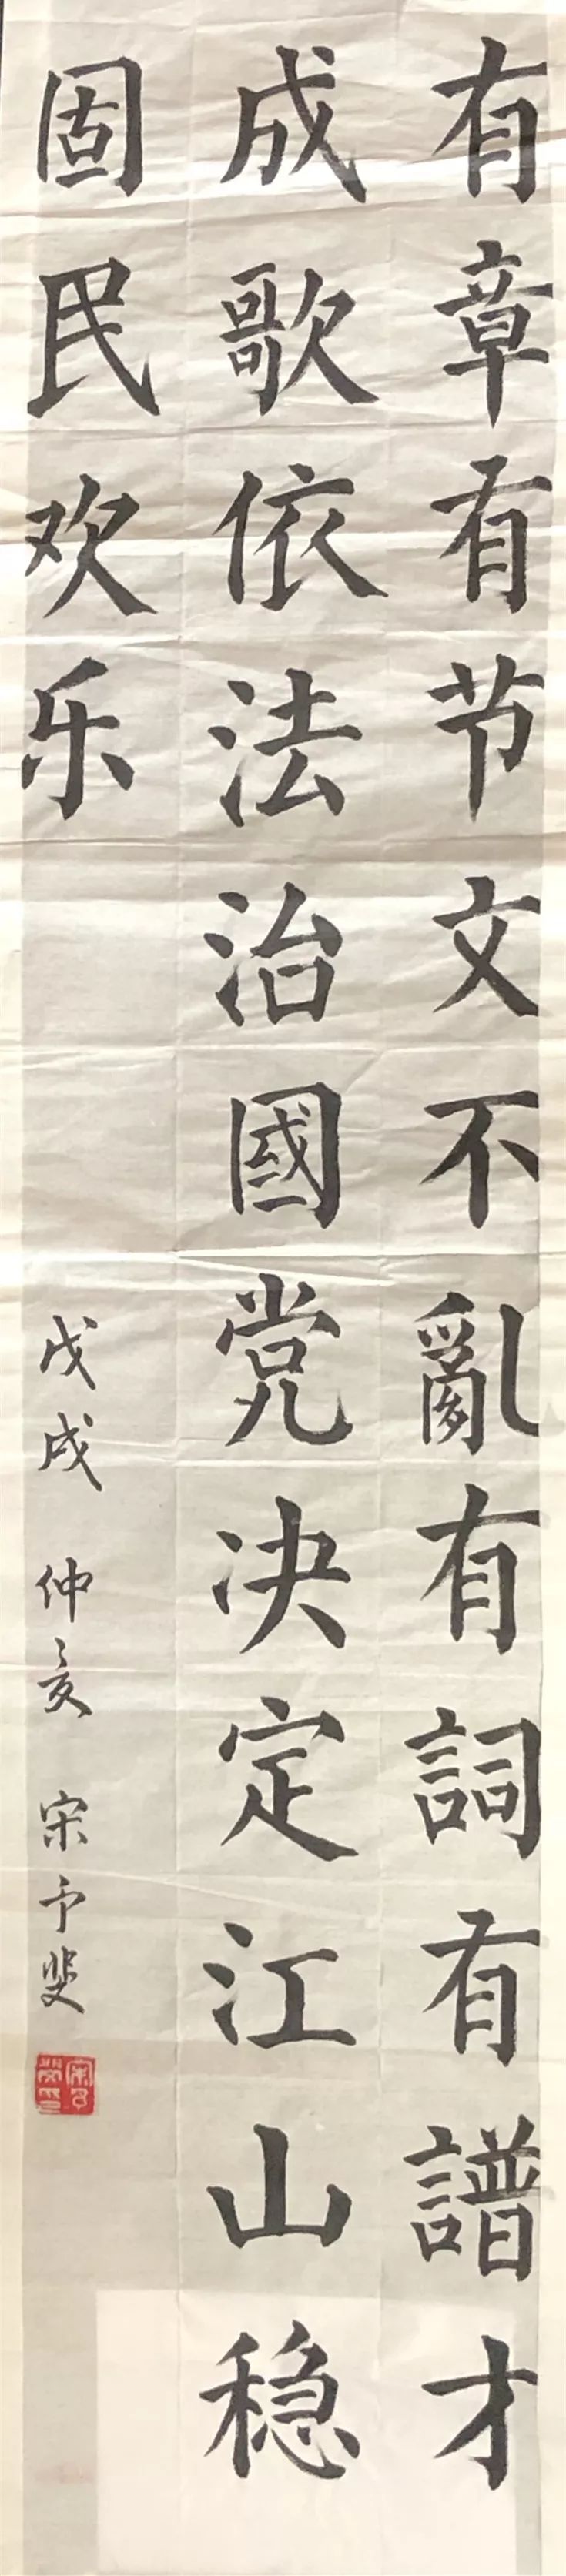 有章有节文不亂有詞有譜才
成歌依法治國党决定江山稳
固民欢乐
戊戌 仲亥 宋予斐